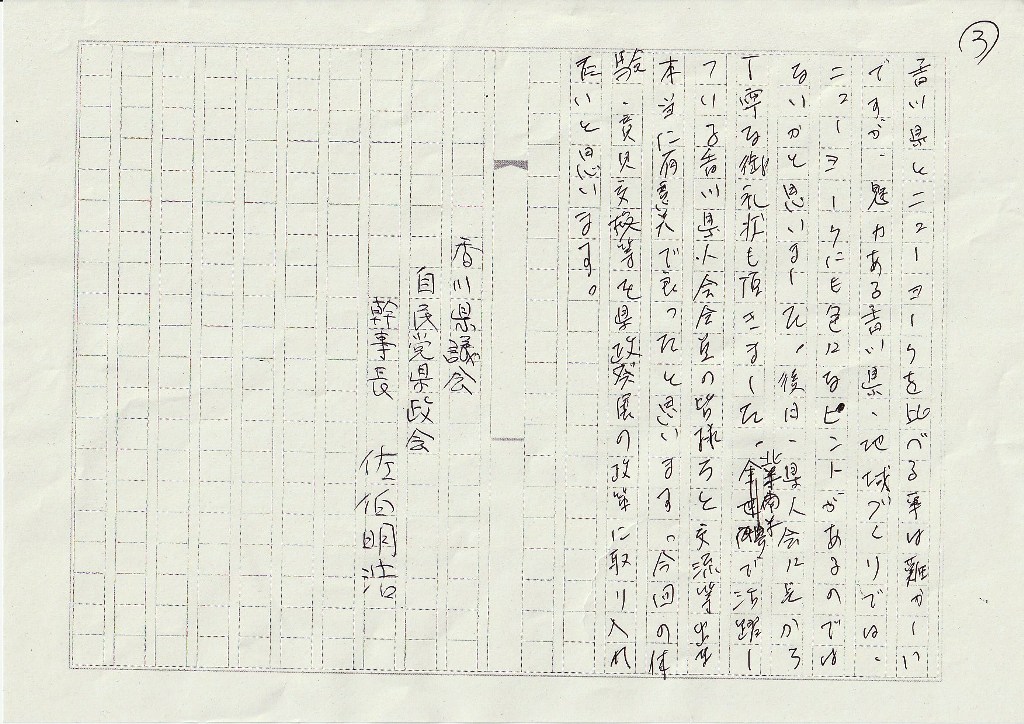 ③
香川県とニューヨークを比べる事は難かしい
ですが、魅力ある香川県、地域づくりでは、
ニューヨークにも色々なヒントがあるのでは
ないかと思いました。後日、県人会会長から
丁寧な御礼状も頂きました。北米南米で活躍し
ている香川県人会会員の皆様方と交流等出来
本当に有意義で良かったと思います。今回の体
験、意見交換等を県政発展の政策に取り入れ
たいと思います。
香川県議会
自民党県政会
幹事長 佐伯明浩